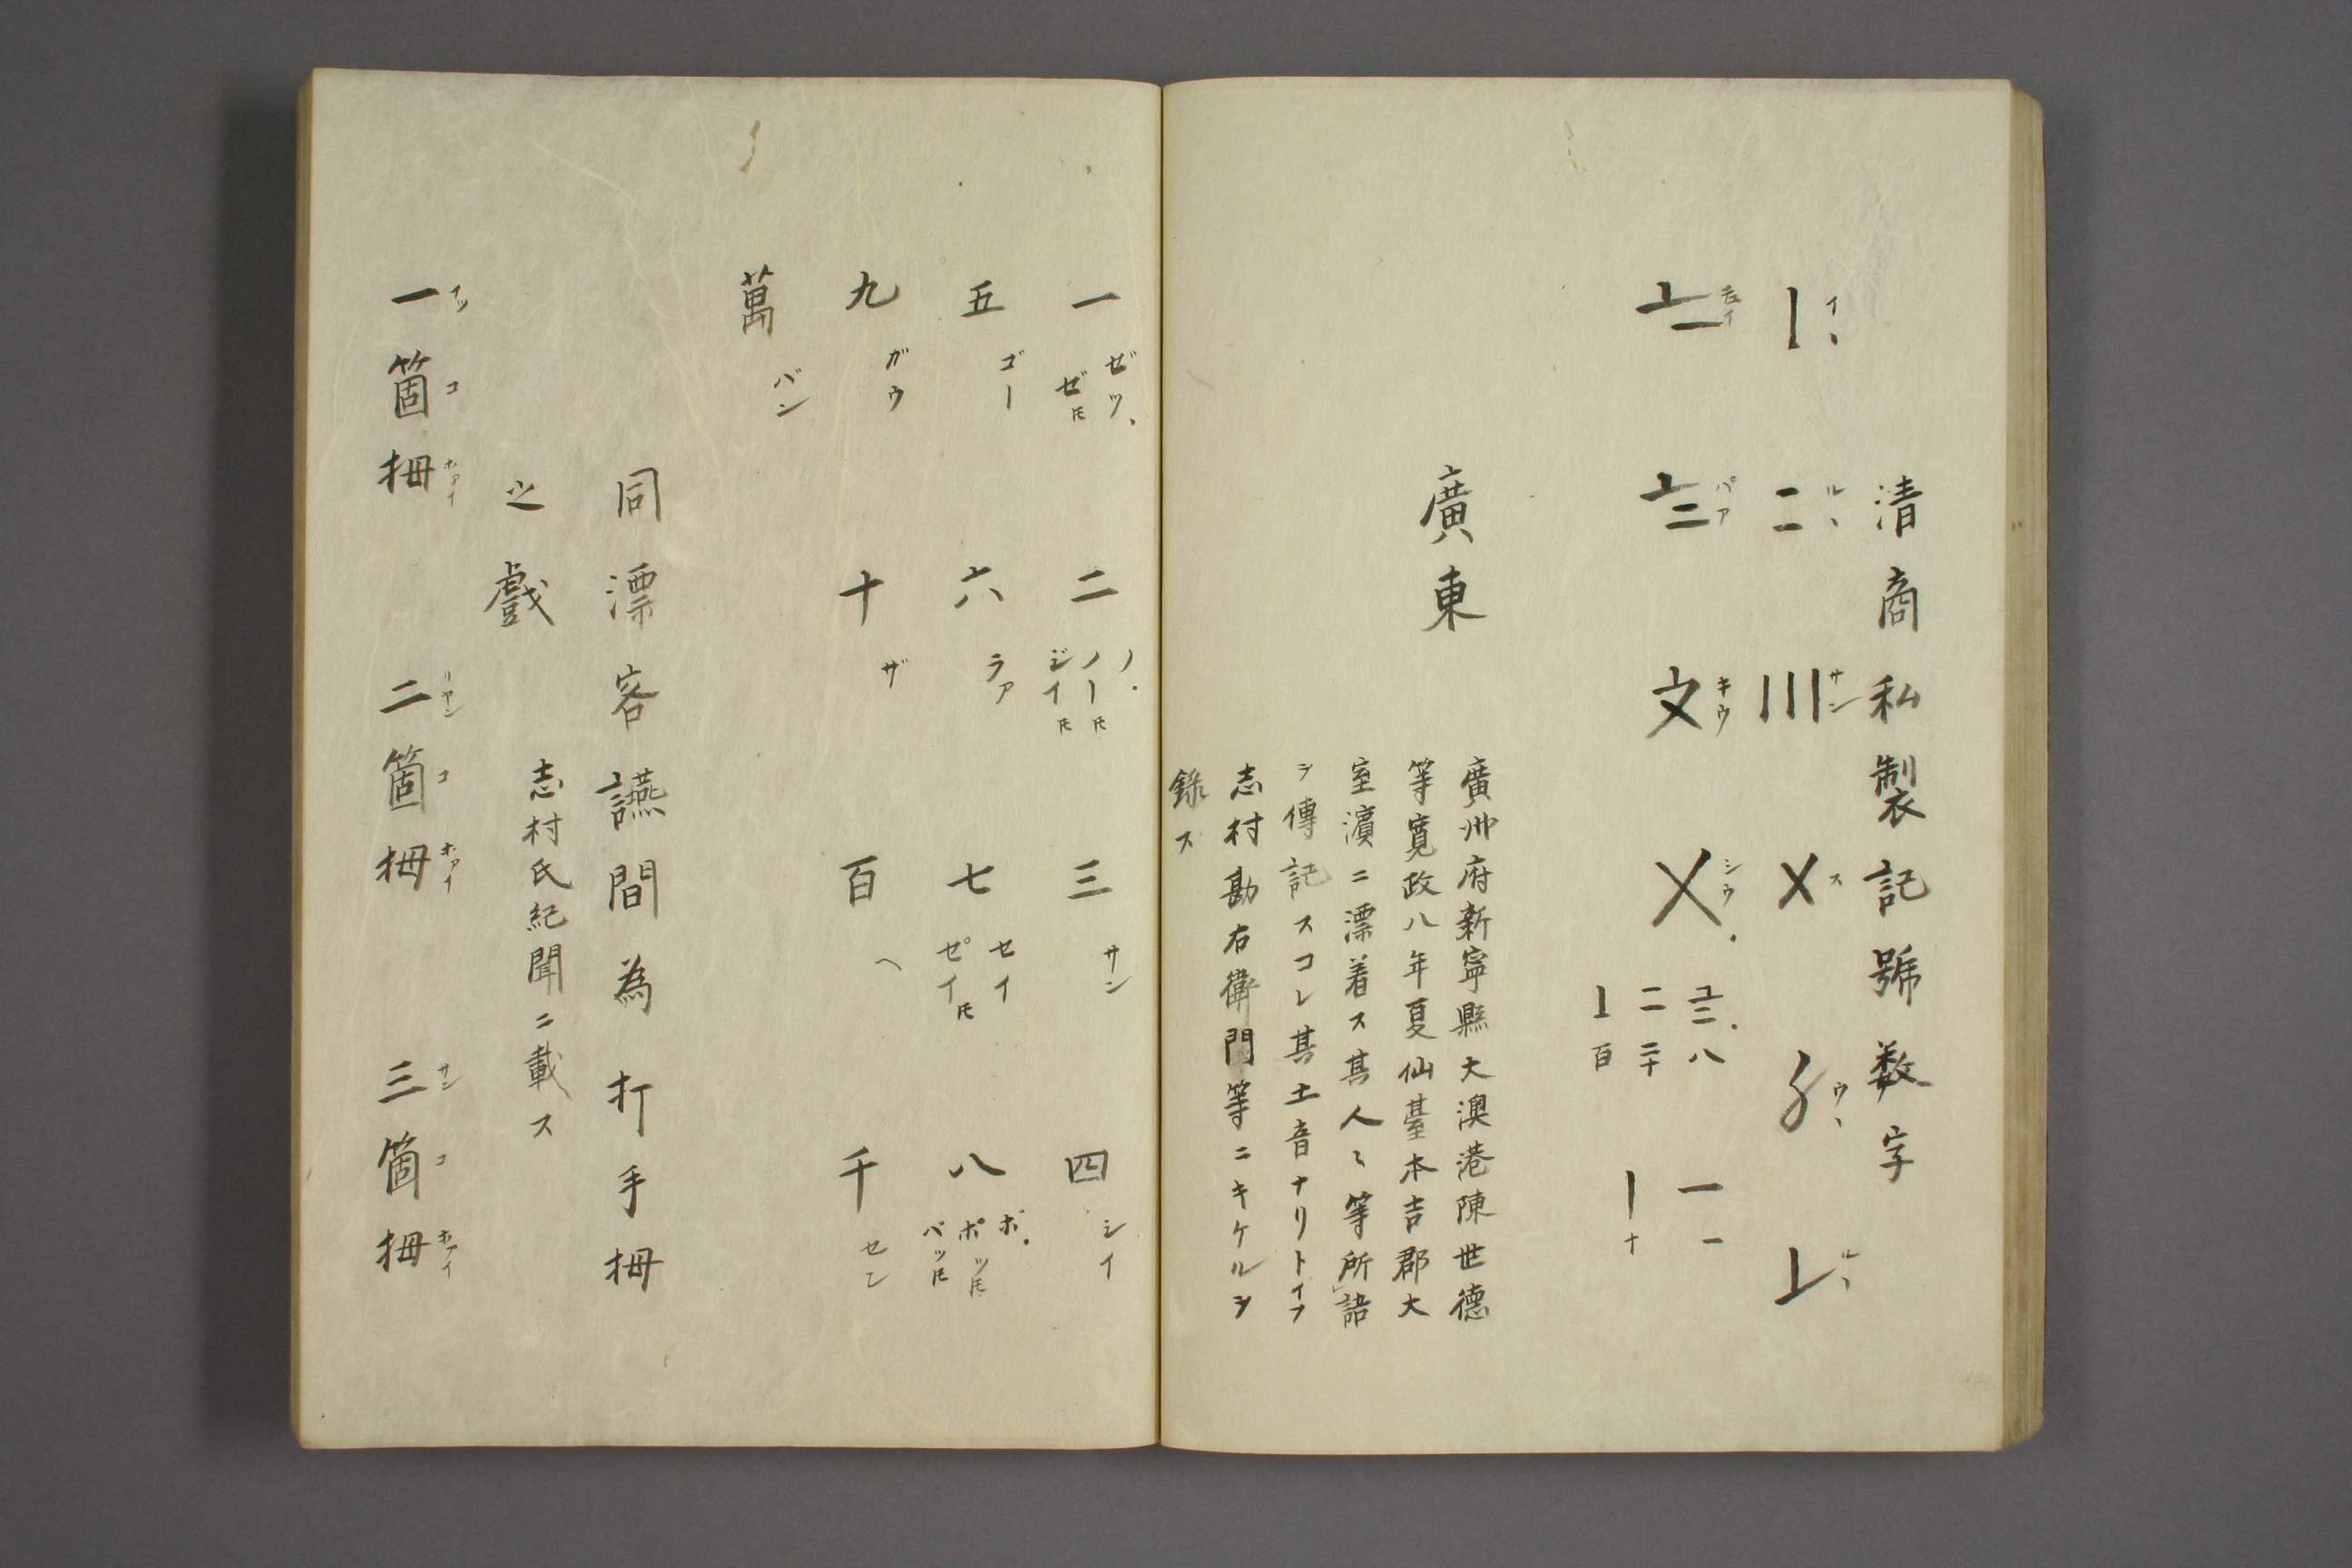 清商私製記號数字
〡イ、 二ル、 〣サン 〤ス 〥ウ、 〦ル、
〧チエイ 〨パア 文キウ 〤シウ
〨八 一一
二二十 〡十
〡百
廣東
廣州府新寧縣大澳港陳世德
等寛政八年夏仙䑓本吉郡大
室濵ニ漂着ス其人〻等所語
ヲ傳記スコレ其土音ナリトイフ
志村勘右衛門等ニキケルヲ
録ス
一ゼツ、ゼ𪜈 二ノ.ノー𪜈ジイ𪜈 三サン 四シイ
五ゴー 六ラア 七セイゼイ𪜈 八ボ.ポツ𪜈バツ𪜈
九ガウ 十ザ 百ヘ 千セン
萬バン
同漂客讌間為打手拇
之戲 志村氏紀聞ニ載ス
一イツ箇コ拇ホアイ 二リヤン箇コ拇ホアイ 三サン箇コ拇ホアイ